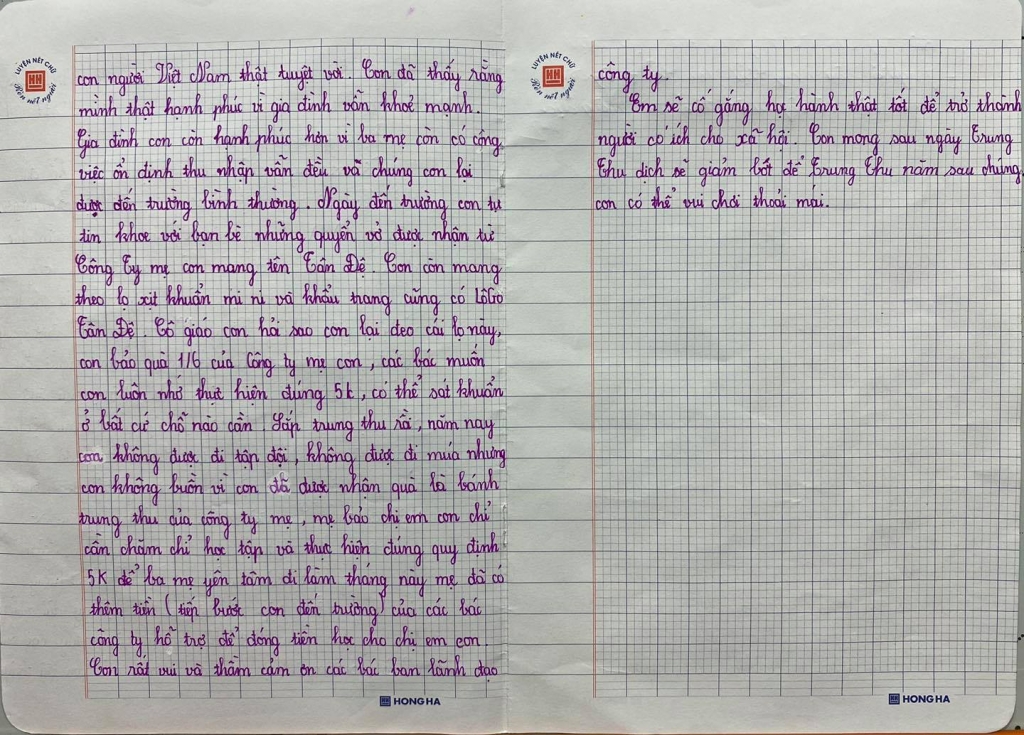 LUYỆN NÉT CHỮ
HH
Rèn nết người
con người Việt Nam thật tuyệt vời. Con đã thấy rằng
mình thật hạnh phúc vì gia đình vẫn khoẻ mạnh.
Gia đình con còn hạnh phúc hơn vì ba mẹ còn có công
việc ổn định thu nhập vẫn đều và chúng con lại
được đến trường bình thường. Ngày đến trường con tự
tin khoe với bạn bè những quyển vở được nhận từ
Công Ty mẹ con mang tên Tân Đệ. Con còn mang
theo lọ xịt khuẩn mi ni và khẩu trang cũng có LôGô
Tân Đệ. Cô giáo con hỏi sao con lại đeo cái lọ này,
con bảo quà 1/6 của Công ty mẹ con, các bác muốn
con luôn nhớ thực hiện đúng 5k, có thể sát khuẩn
ở bất cứ chỗ nào cần. Sắp trung thu rồi, năm nay
con không được đi tập đội, không được đi múa nhưng
con không buồn vì con đã được nhận quà là bánh
trung thu của công ty mẹ, mẹ bảo chị em con chỉ
cần chăm chỉ học tập và thực hiện đúng quy định
5K để ba mẹ yên tâm đi làm tháng này mẹ đã có
thêm tiền (tiếp bước con đến trường) của các bác
công ty hỗ trợ để đóng tiền học cho chị em con.
Con rất vui và thầm cảm ơn các bác ban lãnh đạo
HH HONG HA
LUYỆN NÉT CHỮ
HH
Rèn nết người
công ty.
Em sẽ cố gắng học hành thật tốt để trở thành
người có ích cho xã hội. Con mong sau ngày Trung
Thu dịch sẽ giảm bớt để Trung Thu năm sau chúng
con có thể vui chơi thoải mái.
HH HONG HA